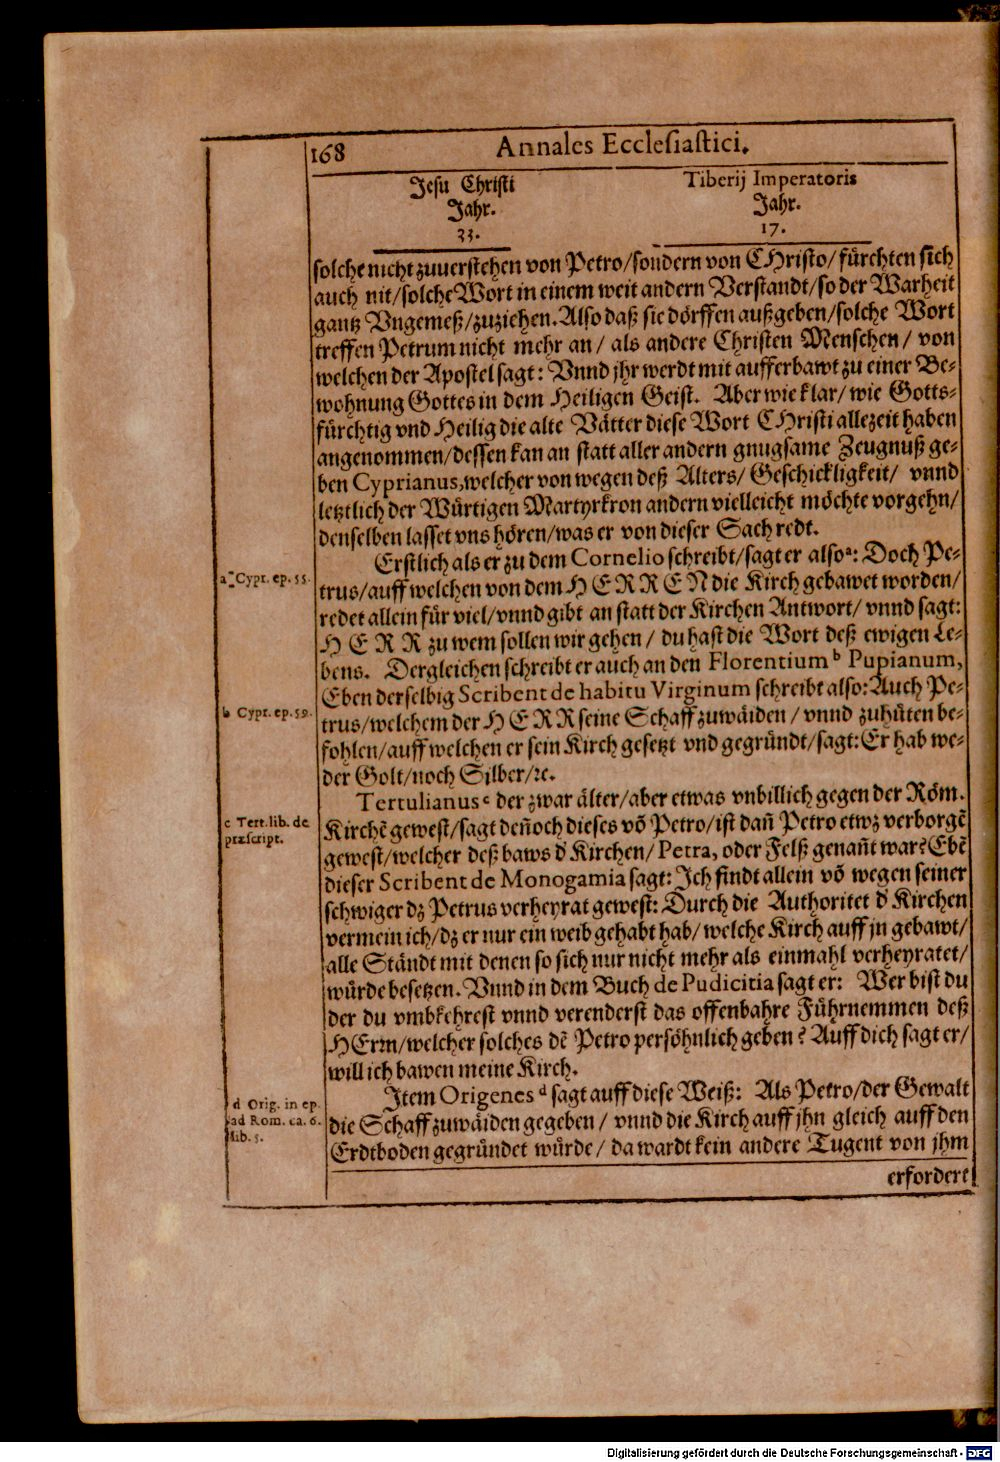 168 Annales Ecclesiastici.
Jesu Christi
Jahr.
33.
Tiberij Imperatoris
Jahr.
17.
solche nicht zuuerstehen von Petro/sondern von CHristo/fürchten sich
auch nit/solche Wort in einem weit andern Verstandt/so der Warheit
gantz Vngemeß/zuziehen. Also daß sie dörffen außgeben/solche Wort
treffen Petrum nicht mehr an/ als andere Christen Menschen/ von
welchen der Apostel sagt: Vnnd jhr werdt mit aufferbawt zu einer Be-
wohnung Gottes in dem Heiligen Geist. Aber wie klar/ wie Gotts-
fürchtig vnd Heilig die alte Vätter diese Wort CHristi allezeit haben
angenommen/dessen kan an statt aller andern gnugsame Zeugnuß ge-
ben Cyprianus, welcher von wegen deß Alters/ Geschickligkeit/ vnnd
letztlich der Würtigen Martyrkron andern vielleicht möchte vorgehn/
denselben lasset vns hören/was er von dieser Sach redt.
Erstlich als er zu dem Cornelio schreibt/sagt er also a: Doch Pe-
a Cypr. ep. 55.
trus/auff welchen von dem HERREN die Kirch gebawet worden/
redet allein für viel/vnnd gibt an statt der Kirchen Antwort/ vnnd sagt:
HERR zu wem sollen wir gehen/ du hast die Wort deß ewigen Le-
bens. Dergleichen schreibt er auch an den Florentium b Pupianum,
Eben derselbig Scribent de habitu Virginum schreibt also: Auch Pe-
b Cypr. ep. 59.
trus/welchem der HERR seine Schaff zuwäiden/ vnnd zuhüten be-
fohlen/auff welchen er sein Kirch gesetzt vnd gegründt/sagt: Er hab we-
der Golt/noch Silber/ꝛc.
Tertulianus c der zwar älter/aber etwas vnbillich gegen der Röm.
c Tert. lib. de
præscript.
Kirchẽ gewest/sagt deñoch dieses võ Petro/ist dañ Petro etwz verborgẽ
gewest/welcher deß baws d' Kirchen/ Petra, oder Felß genañt war? Ebẽ
dieser Scribent de Monogamia sagt: Ich findt allein võ wegen seiner
schwiger dz Petrus verheyrat gewest: Durch die Authoritet d' Kirchen
vermein ich/dz er nur ein weib gehabt hab/ welche Kirch auff jn gebawt/
alle Ständt mit denen so sich nur nicht mehr als einmahl verheyratet/
würde besetzen. Vnnd in dem Buch de Pudicitia sagt er: Wer bist du
der du vmbkehrest vnnd verenderst das offenbahre Führnemmen deß
HErrn/welcher solches dẽ Petro persöhnlich geben? Auff dich sagt er/
will ich bawen meine Kirch.
Item Origenes d sagt auff diese Weiß: Als Petro/der Gewalt
d Orig. in ep.
ad Rom. ca. 6.
lib. 5.
die Schaff zuwäiden gegeben/ vnnd die Kirch auff jhn gleich auff den
Erdtboden gegründet würde/ da wardt kein andere Tugent von jhm
erfordert
Digitalisierung gefördert durch die Deutsche Forschungsgemeinschaft - DFG